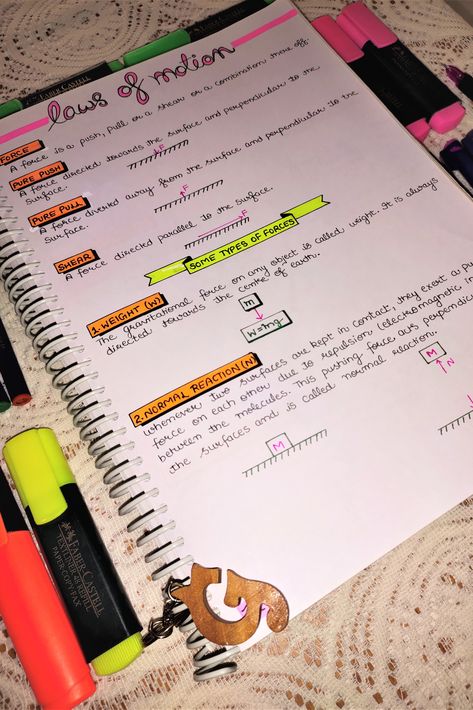 Laws of motion
FORCE
A force is a push, pull or a shear or a combination there off.
PURE PUSH
A force directed towards the surface and perpendicular to the
surface.
F
PURE PULL
A force directed away from the surface and perpendicular to the
surface.
F
SHEAR
A force directed parallel to the surface.
F
SOME TYPES OF FORCES
1. WEIGHT (W)
The gravitational force on any object is called weight. It is always
directed towards the centre of earth.
m
W=mg
2. NORMAL REACTION (N)
Whenever two surfaces are kept in contact, they exert a
force on each other due to repulsion (electromagnetic in
between the molecules. This pushing force acts perpendic
the surfaces and is called normal reaction.
M
M
N
FABER-CASTELL
TEXTLINER 48 REFILL
PAPER-COPY-FAX
FABER-CASTELL